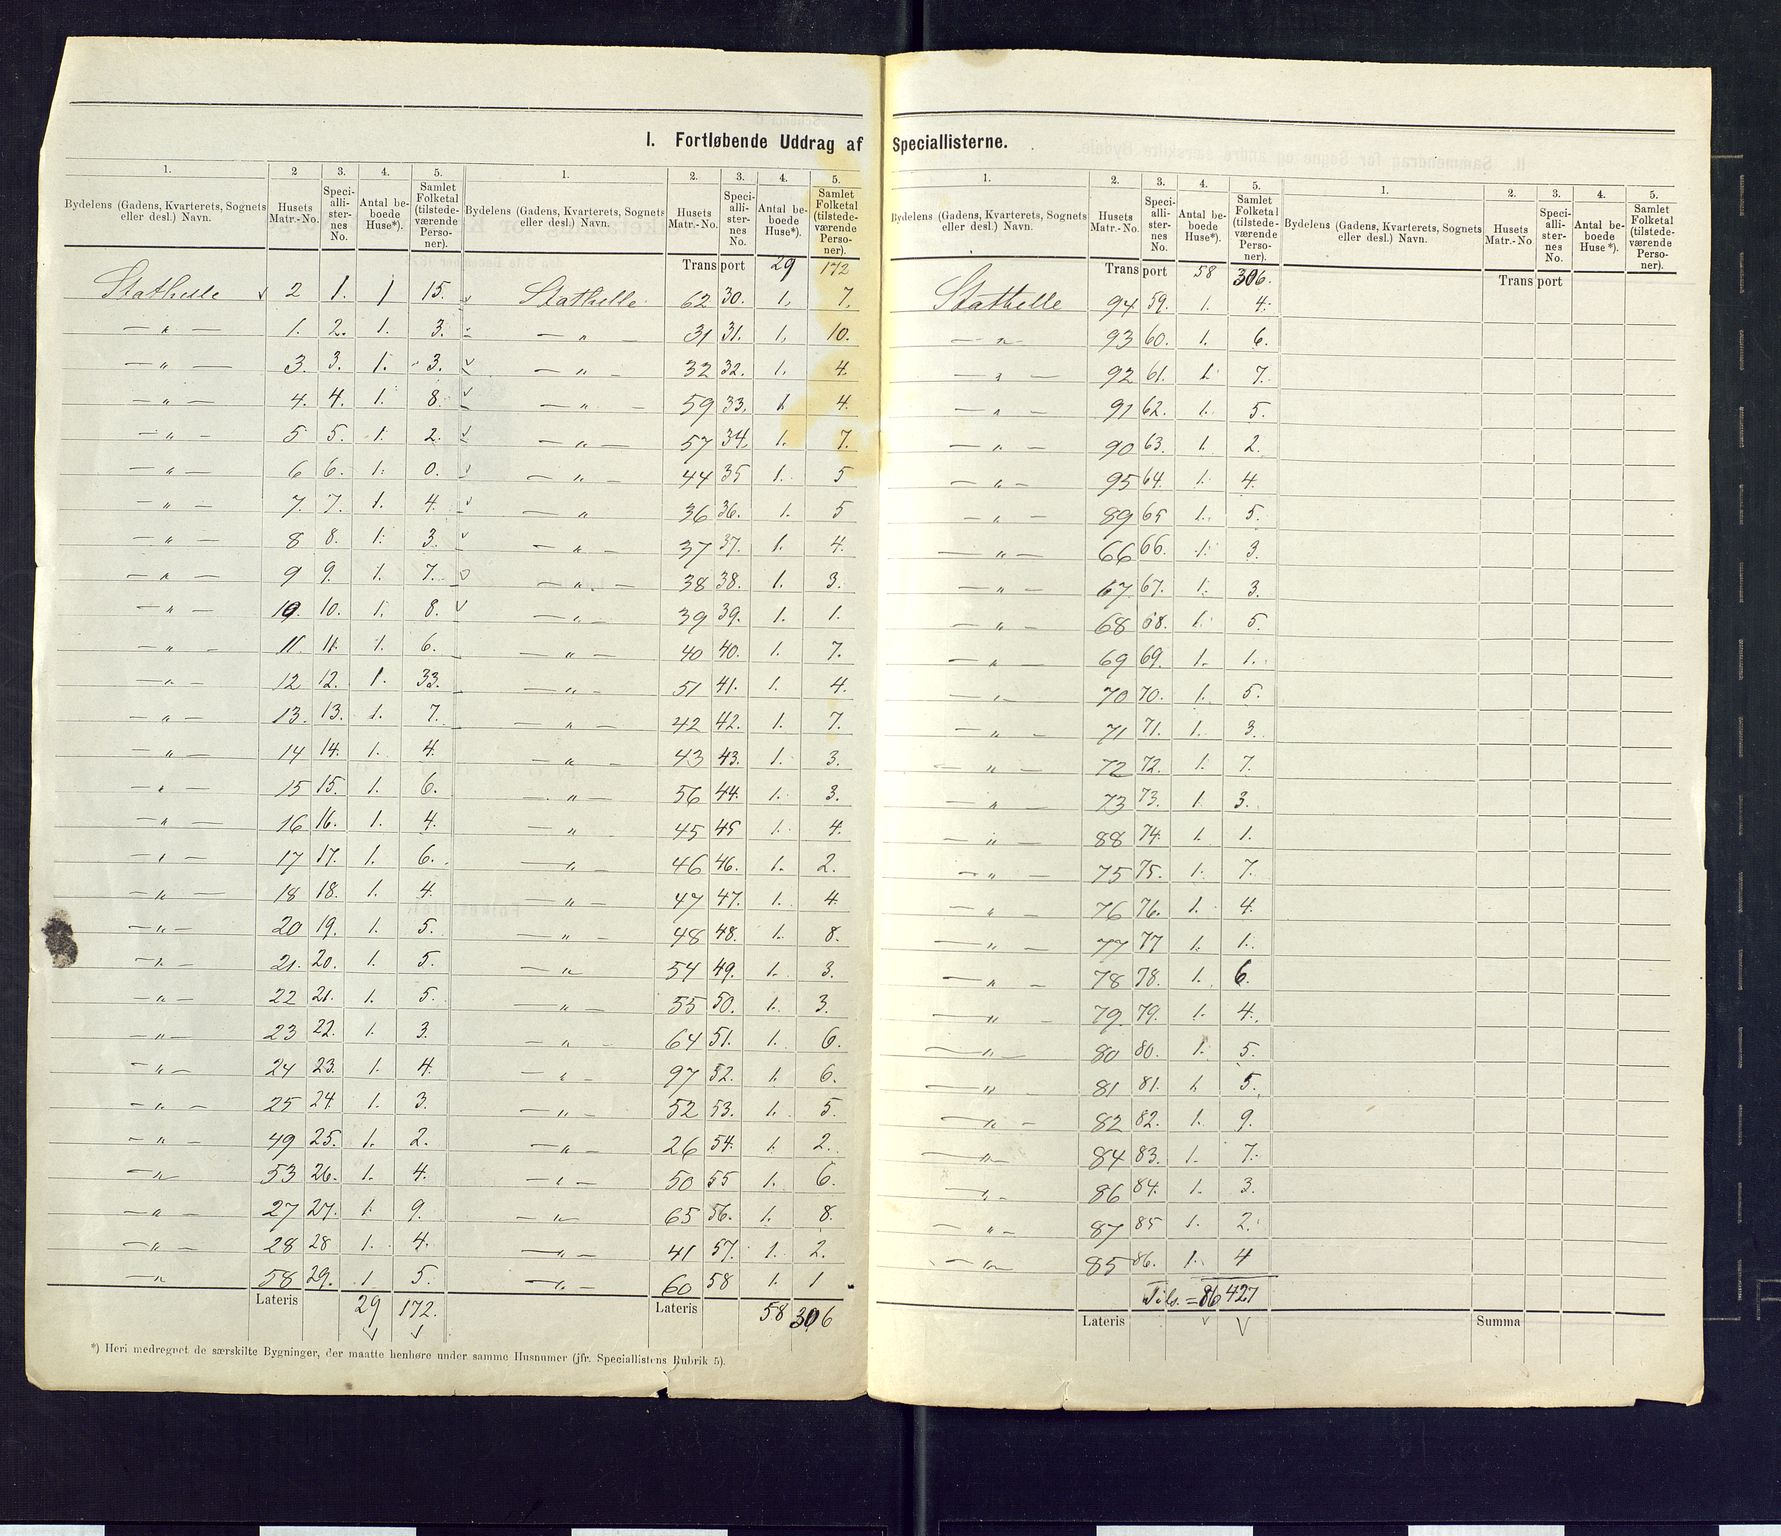 I. Fortløbende Uddrag af Speciallisterne.
1. 2 3. 4. 5.
Bydelens (Gadens, Kvarterets, Sognets eller desl.) Navn. Husets Matr.-No. Speciallisternes No. Antal beboede Huse*). Samlet Folketal (tilstedeværende Personer).
Stathelle 2 1. 1 15.
— „ — 1. 2. 1. 3.
— „ — 3. 3. 1. 3.
— „ — 4. 4. 1. 8.
— „ — 5 5. 1. 2.
— „ — 6 6. 1. 0.
— „ — 7. 7. 1. 4.
— „ — 8 8. 1. 3.
— „ — 9 9. 1. 7.
— „ — 10. 10. 1. 8.
— „ — 11. 11. 1. 6.
— „ — 12 12. 1. 33.
— „ — 13. 13. 1. 7.
— „ — 14 14. 1. 4.
— „ — 15 15. 1. 6.
— „ — 16 16. 1. 4.
— „ — 17 17. 1. 6.
— „ — 18 18. 1. 4.
— „ — 20 19. 1. 5.
— „ — 21. 20. 1. 5.
— „ — 22 21. 1. 5.
— „ — 23 22. 1. 3.
— „ — 24 23. 1. 4.
— „ — 25 24. 1. 3.
— „ — 49 25. 1. 2.
— „ — 53 26. 1. 4.
— „ — 27 27. 1. 9.
— „ — 28 28 1. 4.
— „ — 58 29. 1 5.
Lateris 29 172.
1. 2. 3. 4. 5.
Bydelens (Gadens, Kvarterets, Sognets eller desl.) Navn. Husets Matr.-No. Speciallisternes No. Antal beboede Huse*). Samlet Folketal (tilstedeværende Personer).
Transport 29 172
Stathelle 62 30. 1. 7.
— „ — 31 31. 1. 10.
— „ — 32 32. 1. 4.
— „ — 59 33. 1 4.
— „ — 57 34. 1. 7.
— „ — 44 35 1. 5
— „ — 36 36. 1. 5
— „ — 37 37. 1. 4.
— „ — 38 38. 1. 3.
— „ — 39 39. 1. 1.
— „ — 40 40. 1. 7.
— „ — 51 41. 1. 4.
— „ — 42 42. 1. 7.
— „ — 43 43. 1. 3.
— „ — 56 44. 1. 3.
— „ — 45 45 1. 4.
— „ — 46 46. 1. 2.
— „ — 47 47. 1. 4
— „ — 48 48. 1. 8.
— „ — 54 49. 1. 3.
— „ — 55 50. 1. 3.
— „ — 64 51. 1. 6.
— „ — 97 52. 1. 6.
— „ — 52 53. 1. 5.
— „ — 26 54. 1. 2.
— „ — 50 55 1. 6.
— „ — 65 56. 1. 8.
— „ — 41 57. 1. 2.
— „ — 60 58 1. 1
Lateris 58 306
*) Heri medregnet de særskilte Bygninger, der maatte henhøre under samme Husnumer (jfr. Speciallistens Rubrik 5).
1. 2. 3. 4. 5.
Bydelens (Gadens, Kvarterets, Sognets eller desl.) Navn. Husets Matr.-No. Speciallisternes No. Antal beboede Huse*). Samlet Folketal (tilstedeværende Personer).
Transport 58 306.
Stathelle 94 59. 1. 4.
— „ — 93 60. 1. 6.
— „ — 92 61. 1. 7.
— „ — 91 62. 1. 5.
— „ — 90 63. 1. 2.
— „ — 95 64. 1. 4.
— „ — 89 65 1. 5.
— „ — 66 66. 1. 3.
— „ — 67 67. 1. 3.
— „ — 68 68. 1. 5.
— „ — 69 69. 1. 1.
— „ — 70 70. 1. 5.
— „ — 71 71. 1. 3.
— „ — 72 72. 1. 7.
— „ — 73 73. 1. 3.
— „ — 88 74. 1. 1.
— „ — 75 75. 1. 7.
— „ — 76 76. 1. 4.
— „ — 77 77 1. 1.
— „ — 78 78. 1. 6.
— „ — 79 79. 1. 4.
— „ — 80 80. 1. 5.
— „ — 81 81. 1. 5.
— „ — 82 82. 1. 9.
— „ — 84 83. 1. 7.
— „ — 86 84. 1. 3.
— „ — 87 85 1. 2.
— „ — 85 86. 1. 4
Tils. = 86 427
Lateris
1. 2. 3. 4. 5.
Bydelens (Gadens, Kvarterets, Sognets eller desl.) Navn. Husets Matr.-No. Speciallisternes No. Antal beboede Huse*). Samlet Folketal (tilstedeværende Personer).
Transport
Summa